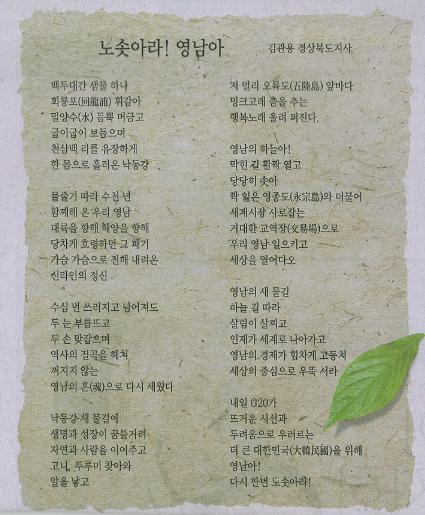 노솟아라! 영남아
김관용 경상북도지사
백두대간 샘물 하나
회룡포(回龍浦) 휘감아
밀양수(水) 듬뿍 머금고
굽이굽이 보듬으며
천삼백 리를 유장하게
한 몸으로 흘러온 낙동강
물줄기 따라 수천 년
함께해 온 우리 영남
대륙을 향해 해양을 향해
당차게 호령하던 그 패기
가슴 가슴으로 전해 내려온
신라인의 정신
수십 번 쓰러지고 넘어져도
두 눈 부릅뜨고
두 손 맞잡으며
역사의 질곡을 헤쳐
꺼지지 않는
영남의 혼(魂)으로 다시 세웠다
낙동강 새 물길에
생명과 성장이 꿈틀거려
자연과 사람을 이어주고
고니, 두루미 찾아와
알을 낳고
저 멀리 오륙도(五陸島) 앞바다
밍크고래 춤을 추는
행복노래 울려 퍼진다.
영남의 하늘아!
막힌 길 활짝 열고
당당히 솟아
짝 잃은 영종도(永宗島)와 더불어
세계시장 사로잡는
거대한 교역장(交易場)으로
우리 영남 일으키고
세상을 열어다오
영남의 새 물길
하늘 길 따라
살림이 살찌고
인재가 세계로 나아가고
영남의 경제가 힘차게 고동쳐
세상의 중심으로 우뚝 서라
내일 G20가
뜨거운 시선과
두려움으로 우러르는
더 큰 대한민국(大韓民國)을 위해
영남아!
다시 한번 노솟아라!